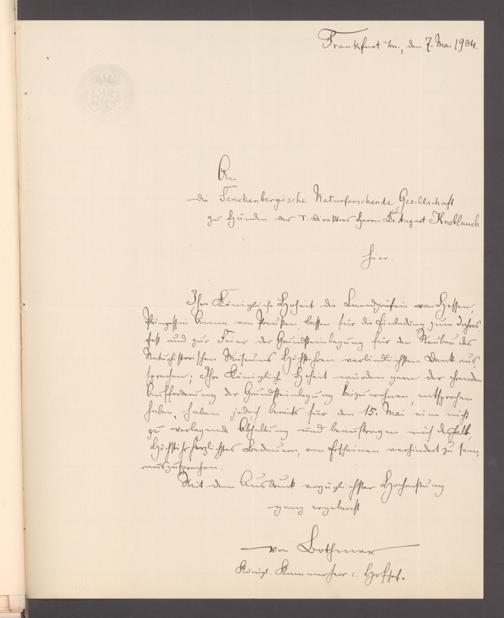 Frankfurt a/M., den 7. Mai 1904.
An
die Senckenbergische Naturforschende Gesellschaft
zu Händen des I. Direktors Herrn Dr. August Knoblauch
hier.
Ihre Königliche Hoheit die Landgräfin von Hessen,
Prinzessin Anna von Preußen, lassen für die Einladung zum Jahres
fest und zur Feier der Grundsteinlegung für den Neubau des
Naturhistorischen Museums Höchstihren verbindlichsten Dank aus-
sprechen; Ihre Königliche Hoheit würden gern der
Aufforderung der Grundsteinlegung beizuwohnen, entsprochen
haben, haben jedoch bereits für den 15. Mai eine nicht
zu verlegende Abhaltung und beauftragen mich deßhalb,
Höchstihr herzlichstes Bedauern, am Erscheinen verhindert zu sein,
auszusprechen.
Mit dem Ausdruck vorzüglichster Hochachtung
ganz ergebenst
von Bothmer
Königl. Kammerherr u. Hofchef.